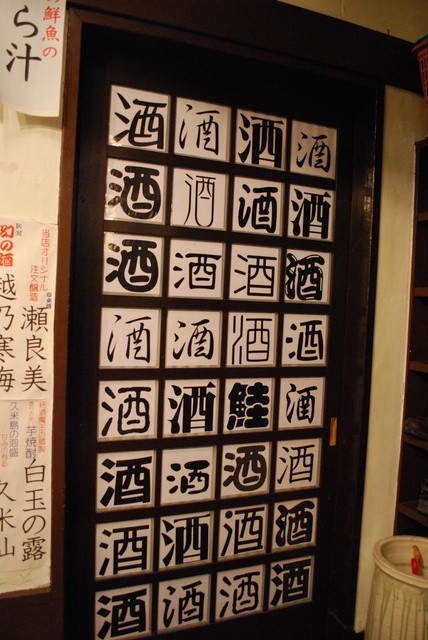 鮮魚の
ら汁
酒 酒 酒 酒
酒 酒 酒 酒
酒 酒 酒 酒
酒 酒 酒 酒
酒 酒 鮭 酒
酒 酒 酒 酒
酒 酒 酒 酒
酒 酒 酒 酒
当店オリジナル
注文醸造
瀬良美
幻の酒
越乃寒
芋焼酎
白玉の露
久米島の泡盛
久米